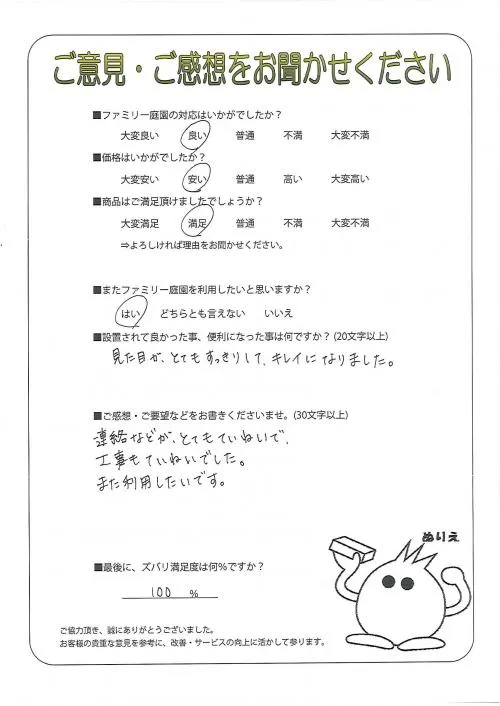 ご意見・ご感想をお聞かせください
■ファミリー庭園の対応はいかがでしたか？
大変良い 良い 普通 不満 大変不満
■価格はいかがでしたか？
大変安い 安い 普通 高い 大変高い
■商品はご満足頂けましたでしょうか？
大変満足 満足 普通 不満 大変不満
⇒よろしければ理由をお聞かせください。
■またファミリー庭園を利用したいと思いますか？
はい どちらとも言えない いいえ
■設置されて良かった事、便利になった事は何ですか？(20文字以上)
見た目が、とてもすっきりして、キレイになりました。
■ご感想・ご要望などをお書きくださいませ。(30文字以上)
連絡などが、とてもていねいで、
工事もていねいでした。
また利用したいです。
ぬりえ
■最後に、ズバリ満足度は何%ですか？
100 %
ご協力頂き、誠にありがとうございました。
お客様の貴重な意見を参考に、改善・サービスの向上に活かして参ります。